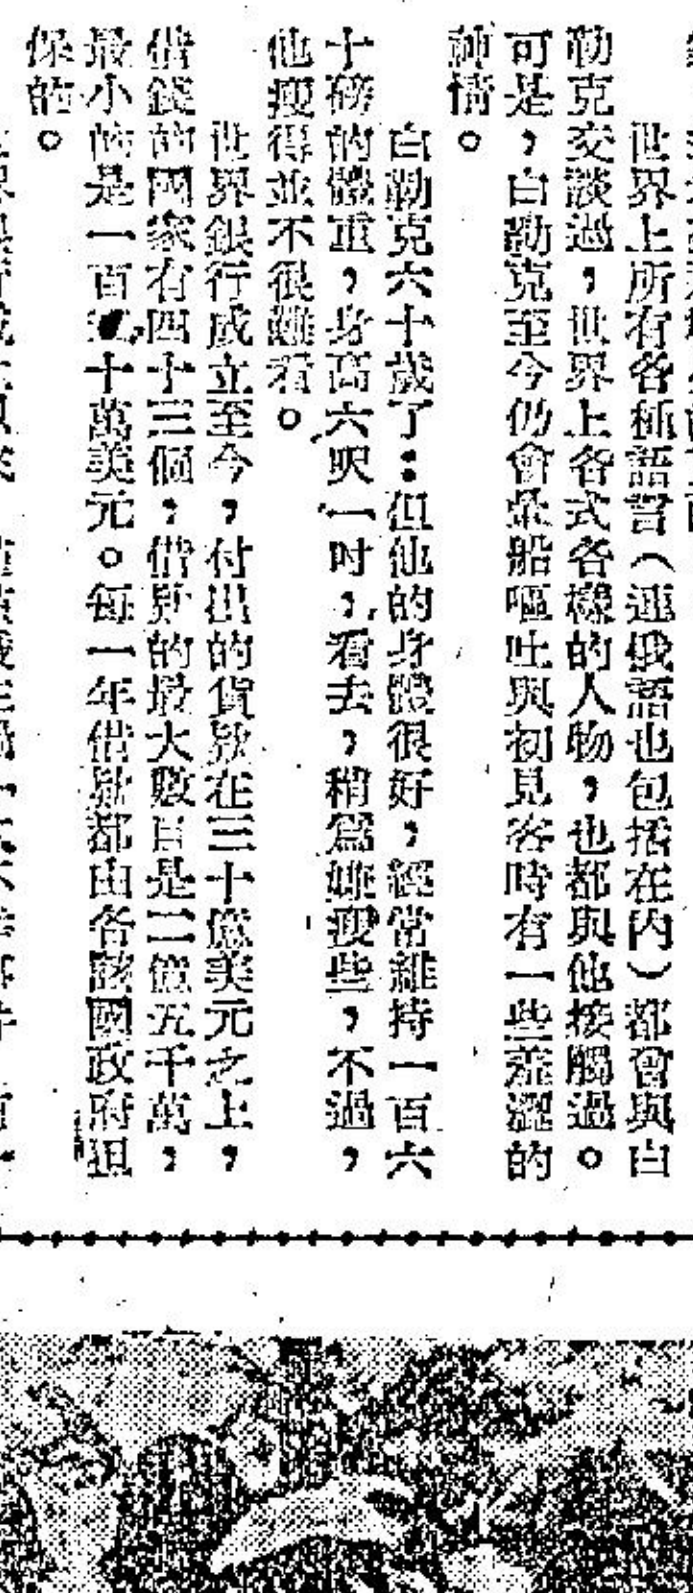 世界上所有各種語言（連俄語也包括在內）都會與白
勒克交談過，世界上各式各樣的人物，也都與他接觸過。
可是，白勒克至今仍會暈船嘔吐與初見客時有一些羞澀的
神情。
白勒克六十歲了：但他的身體很好，經常維持一百六
十磅的體重，身高六呎一吋，看去，稍爲嫌瘦些，不過，
他瘦得並不很難看。
世界銀行成立至今，付出的貸欵在三十億美元之上，
借錢的國家有四十三個，借欵的最大數目是二億五千萬，
最小的是一百五十萬美元。每一年借欵都由各該國政府担
保的。